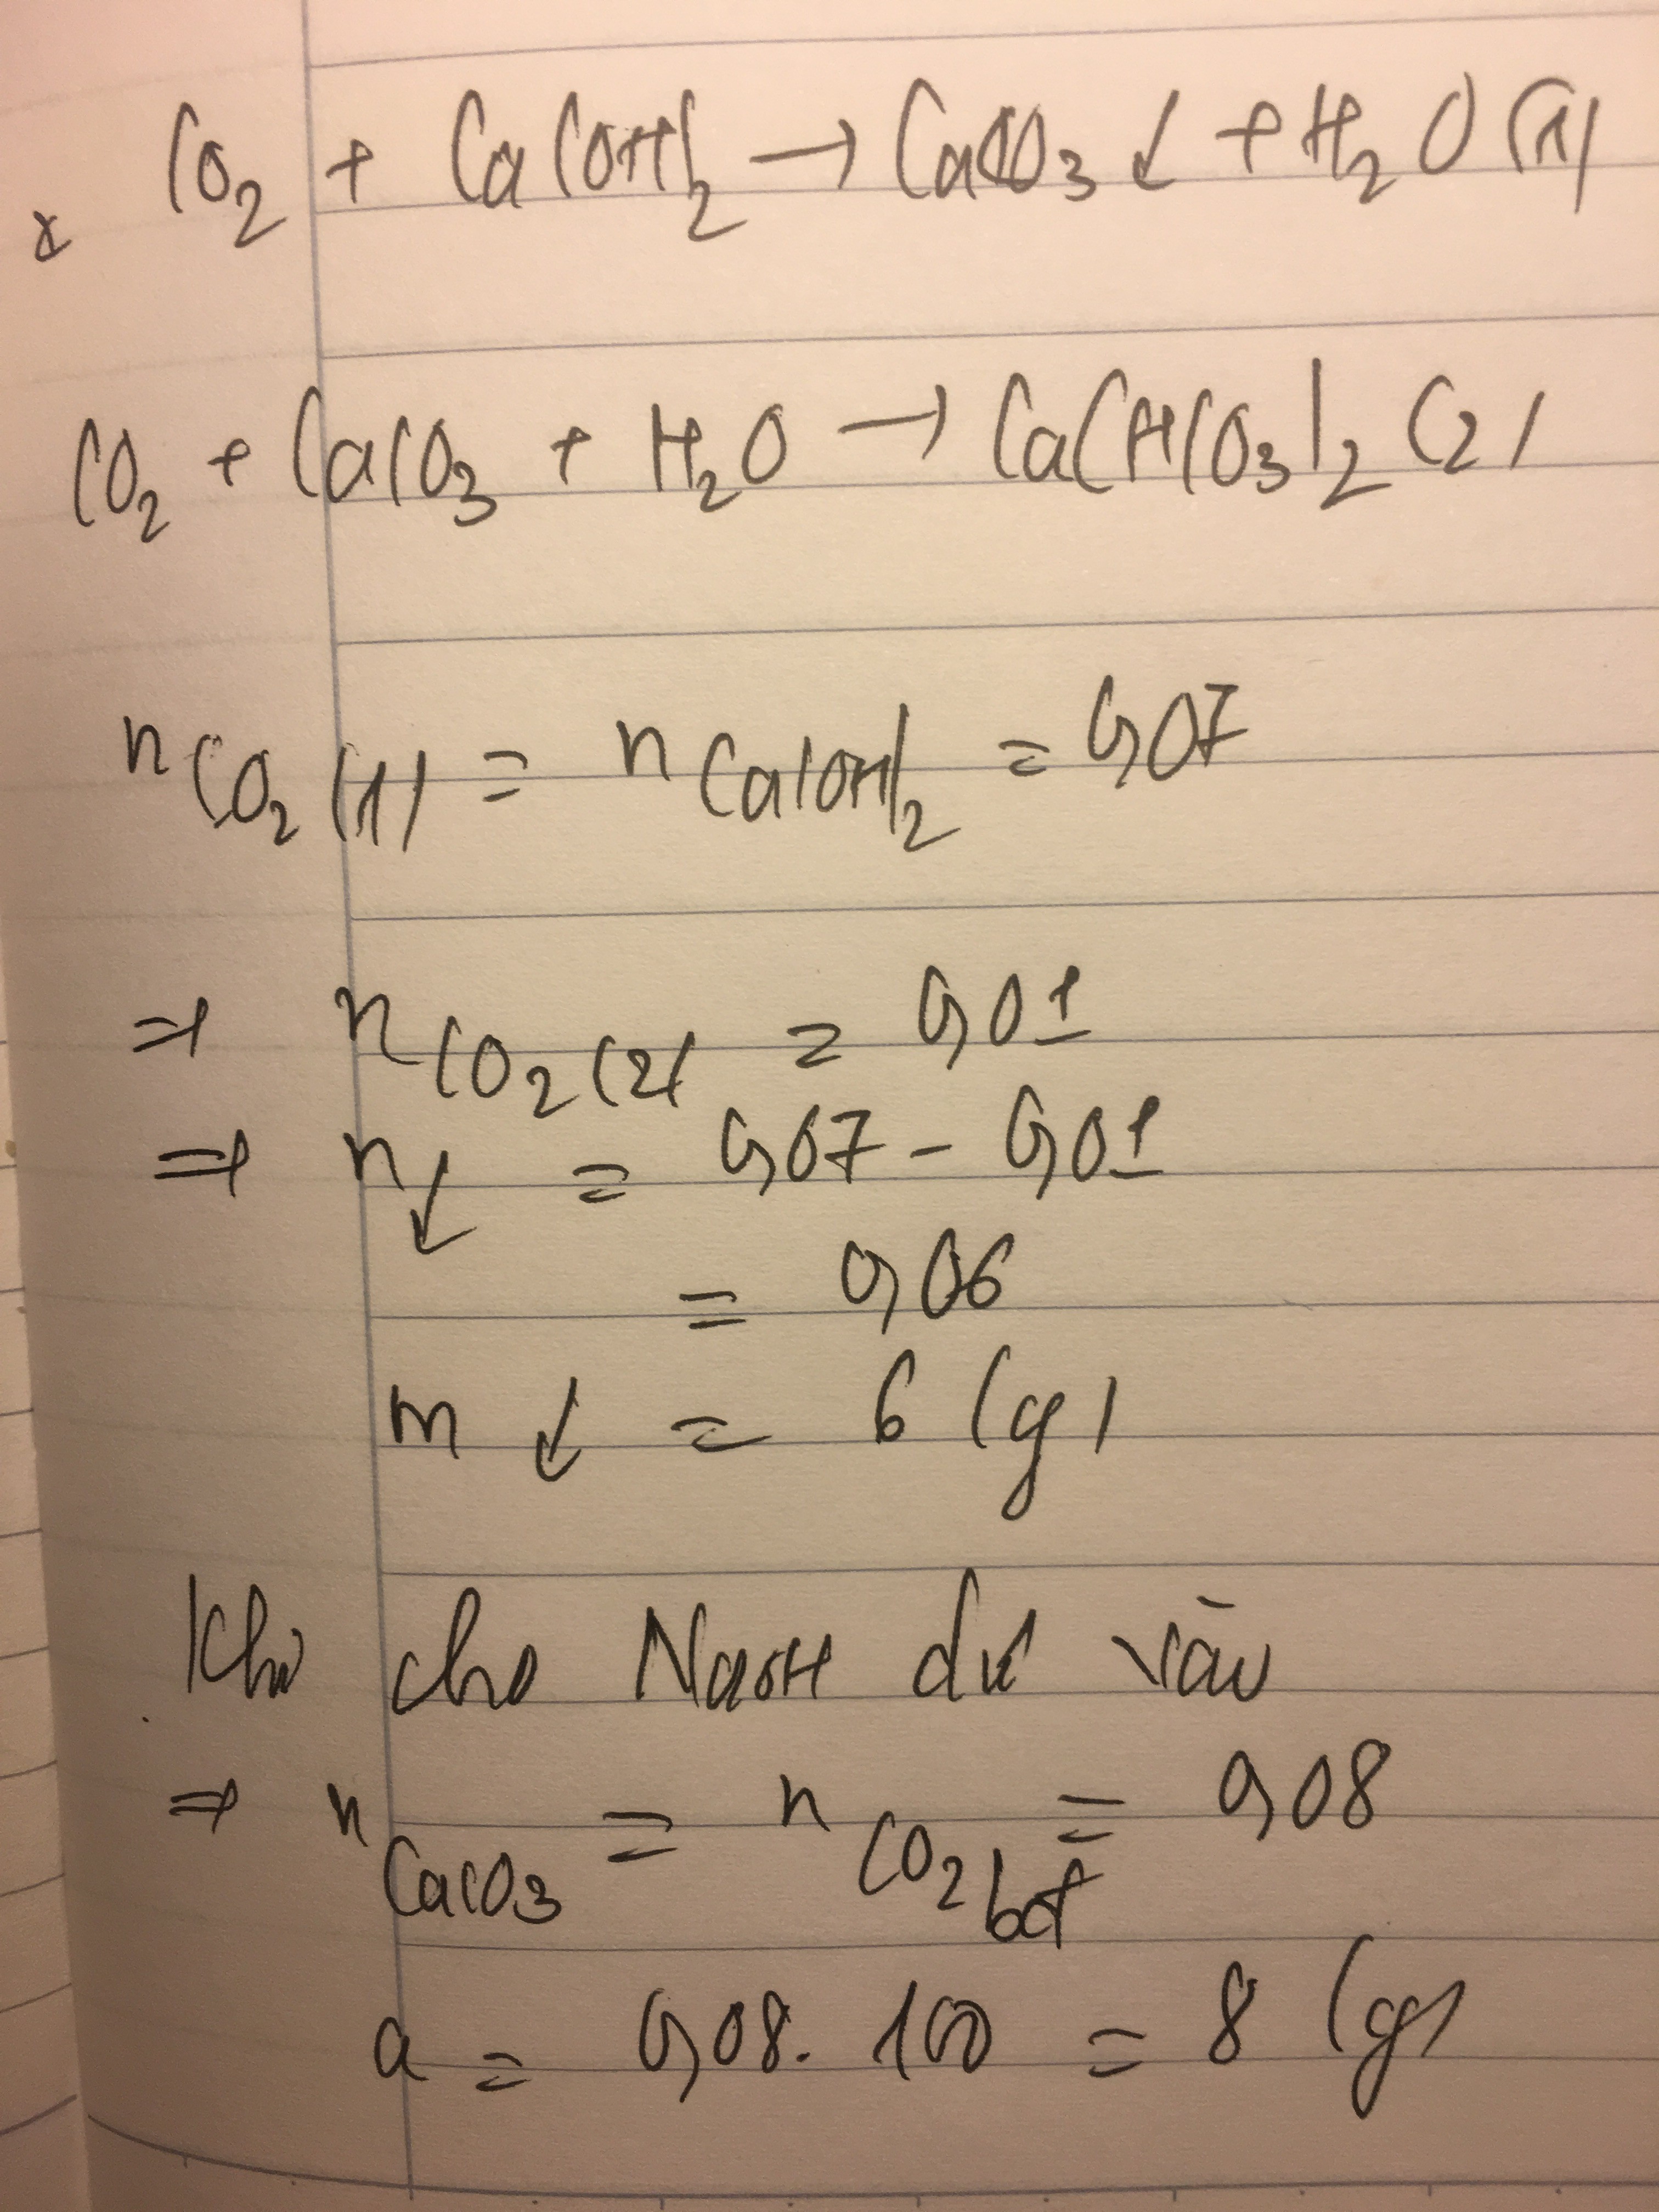 x CO₂ + Ca(OH)₂ → CaCO₃ ↓ + H₂O (1)
CO₂ + CaCO₃ + H₂O → Ca(HCO₃)₂ (2)
n CO₂ (1) = n Ca(OH)₂ = 0,07
⇒ n CO₂ (2) = 0,01
⇒ n↓ = 0,07 - 0,01
= 0,06
m ↓ = 6 (g)
Khi cho NaOH dư vào
⇒ n CaCO₃ = n CO₂ bđ = 0,08
a = 0,08 . 100 = 8 (g)